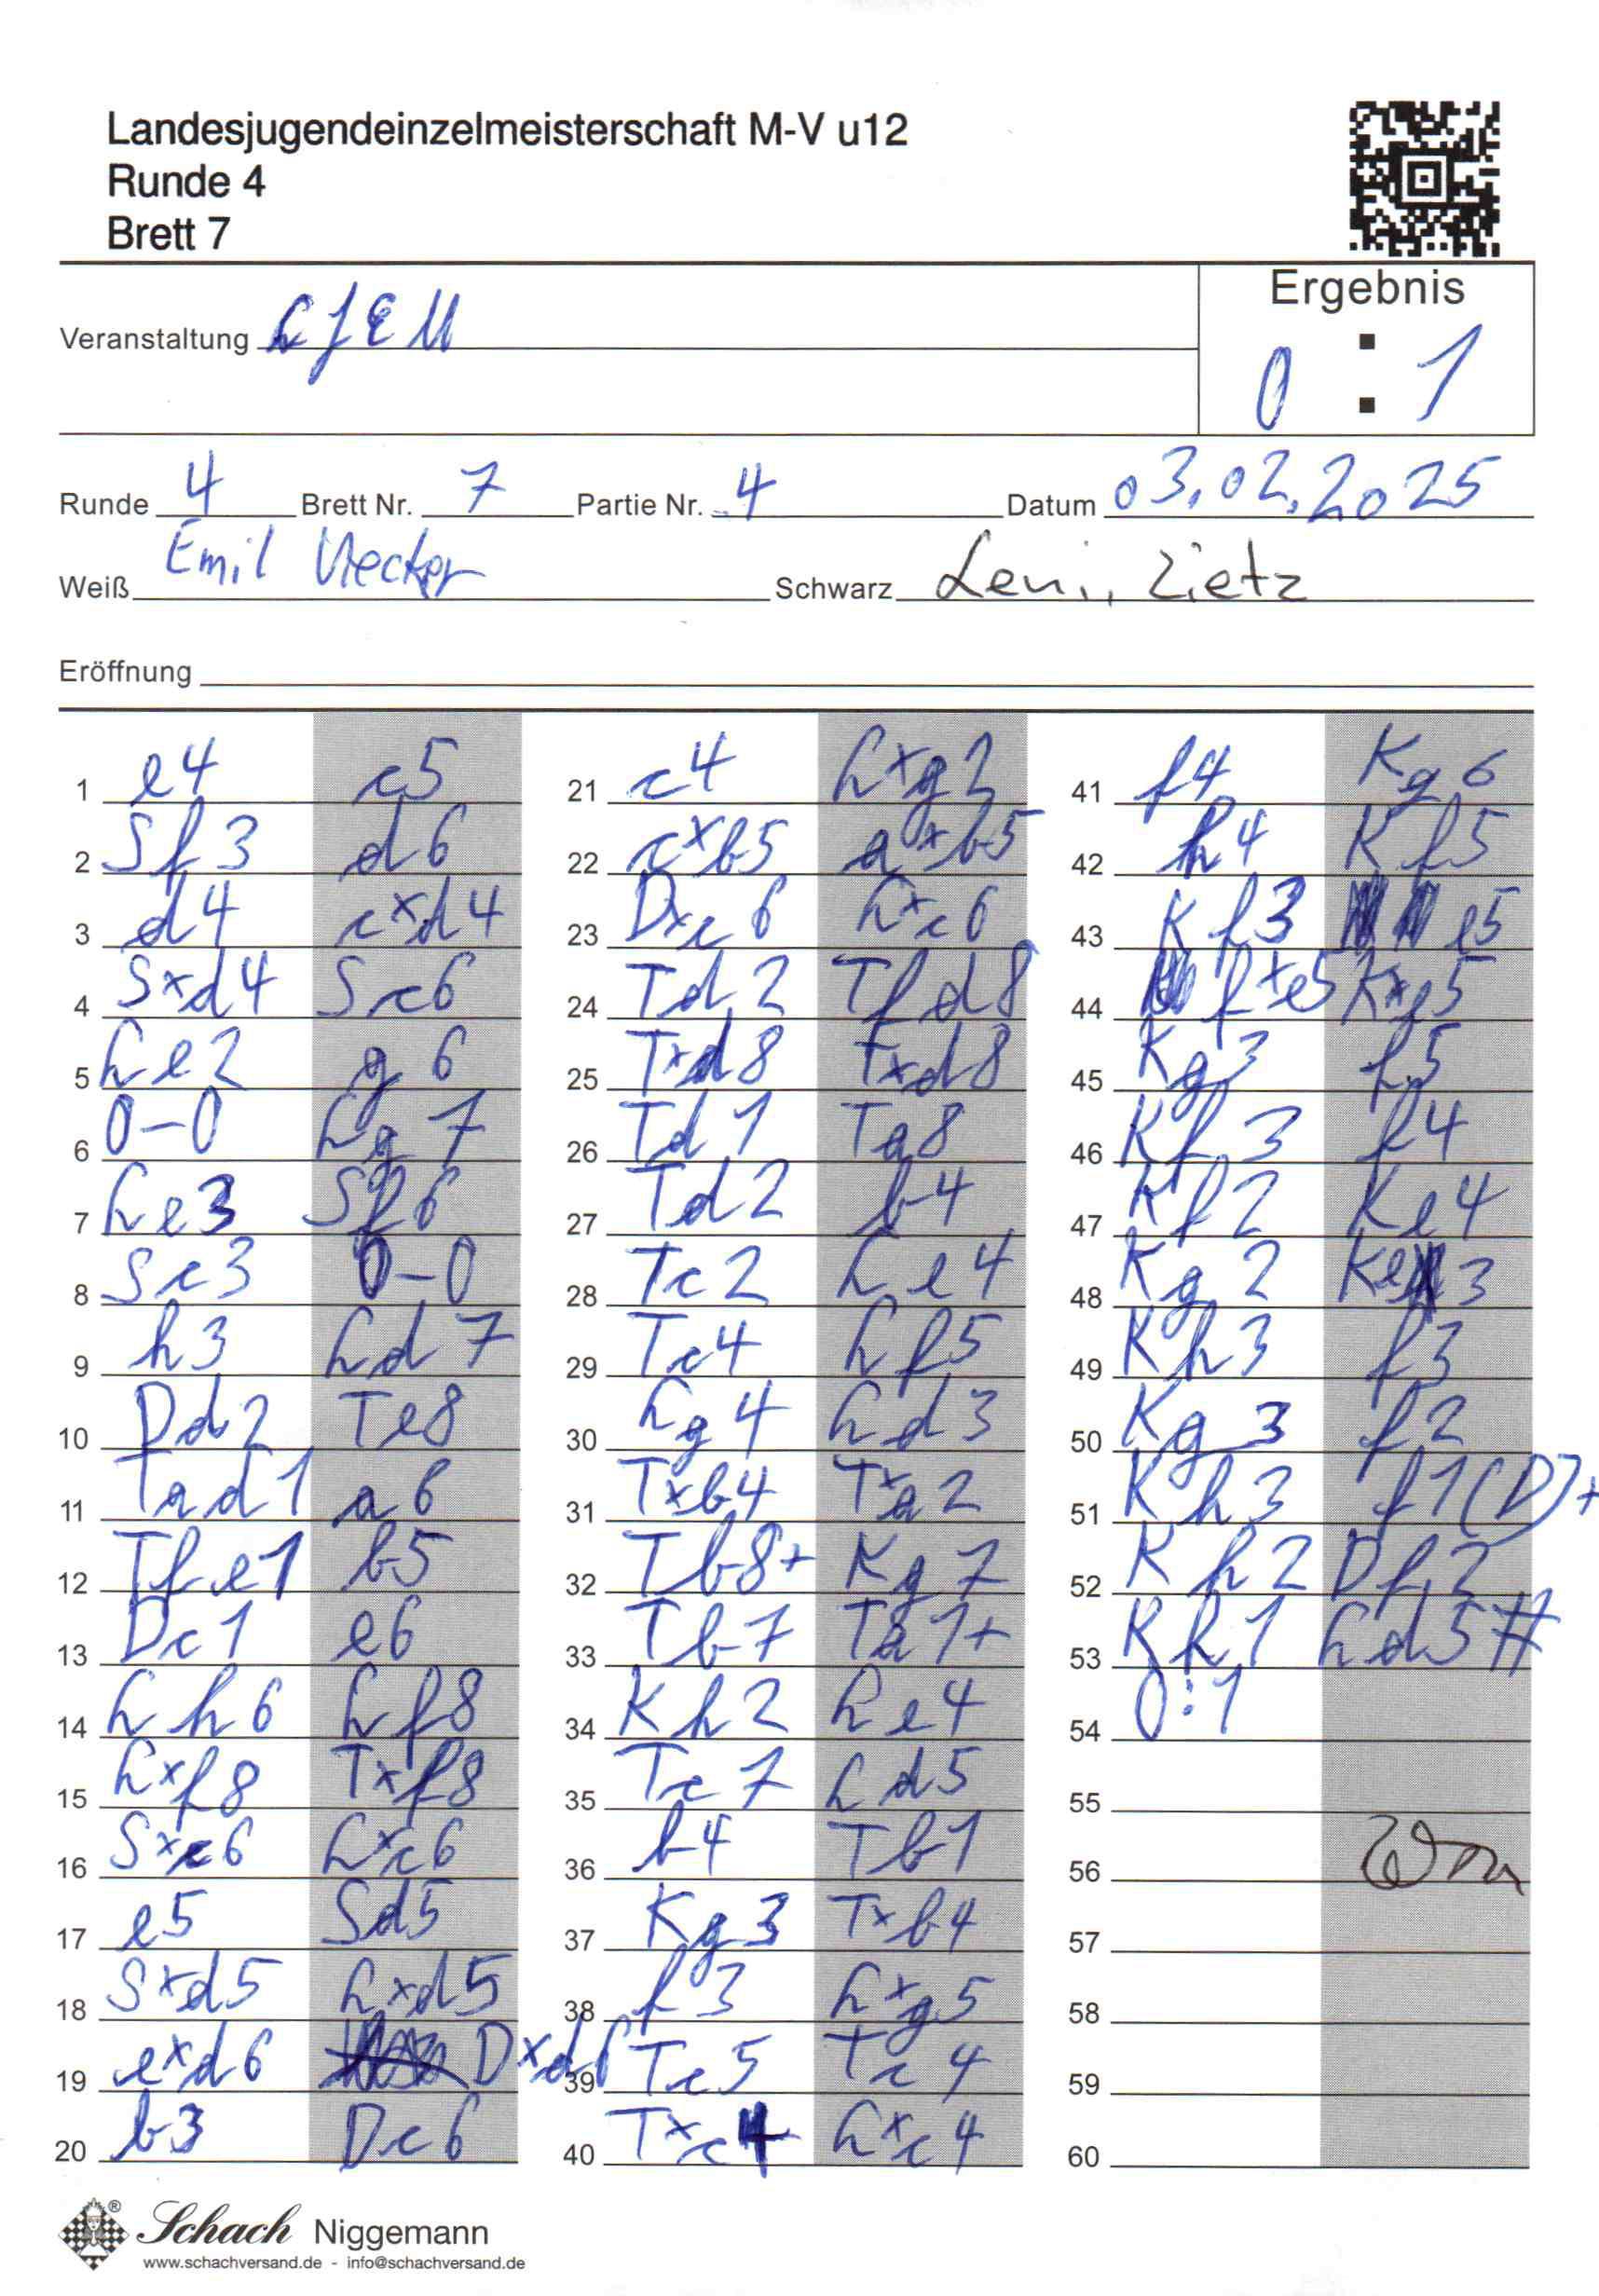 Landesjugendeinzelmeisterschaft M-V u12
Runde 4
Brett 7
Ergebnis
Veranstaltung LJEM
0 : 1
Runde 4 Brett Nr. 7 Partie Nr. 4 Datum 03.02.2025
Weiß Emil Uecker Schwarz Leni, Zietz
Eröffnung
1 e4 c5
2 Sf3 d6
3 d4 cxd4
4 Sxd4 Sc6
5 Le2 g6
6 0-0 Lg7
7 Le3 Sf6
8 Sc3 0-0
9 h3 Ld7
10 Dd2 Te8
11 Tad1 a6
12 Tfe1 b5
13 Dc1 e6
14 Lh6 Lf8
15 Lxf8 Txf8
16 Sxc6 Lxc6
17 e5 Sd5
18 Sxd5 Lxd5
19 exd6 Dxd6
20 b3 Dc6
21 c4 Lxg2
22 cxb5 axb5
23 Dxc6 Lxc6
24 Td2 Tfd8
25 Txd8 Txd8
26 Td1 Ta8
27 Td2 b4
28 Tc2 Le4
29 Tc4 Lf5
30 Lg4 Ld3
31 Txb4 Txa2
32 Tb8+ Kg7
33 Tb7 Ta1+
34 Kh2 Le4
35 Tc7 Ld5
36 b4 Tb1
37 Kg3 Txb4
38 f3 Lxg5
39 Tc5 Tc4
40 Txc4 Lxc4
41 f4 Kg6
42 h4 Kf5
43 Kf3 e5
44 fxe5 Kxe5
45 Kg3 f5
46 Kf3 f4
47 Kf2 Ke4
48 Kg2 Ke3
49 Kh3 f3
50 Kg3 f2
51 Kh3 f1(D)+
52 Kh2 Df2
53 Kh1 Ld5#
54 0:1
55
56
57
58
59
60
Schach Niggemann
www.schachversand.de - info@schachversand.de